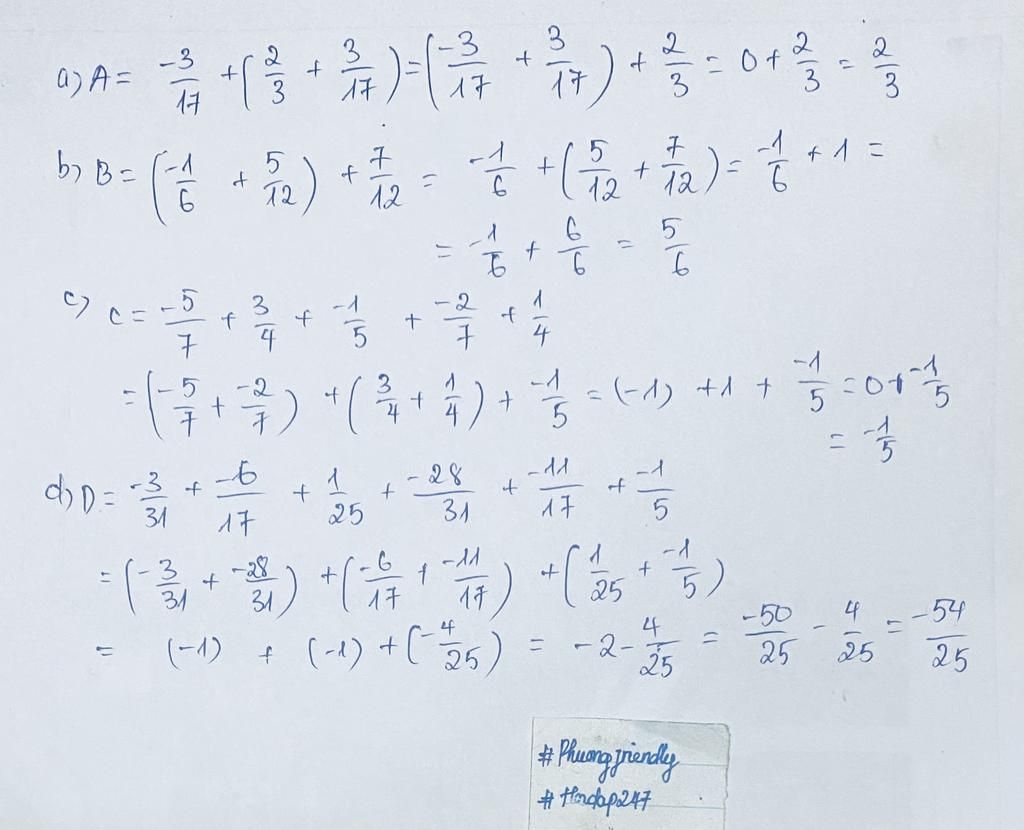 a) A = -3/17 + (2/3 + 3/17) = (-3/17 + 3/17) + 2/3 = 0 + 2/3 = 2/3
b) B = (-1/6 + 5/12) + 7/12 = -1/6 + (5/12 + 7/12) = -1/6 + 1 =
= -1/6 + 6/6 = 5/6
c) C = -5/7 + 3/4 + -1/5 + -2/7 + 1/4
= (-5/7 + -2/7) + (3/4 + 1/4) + -1/5 = (-1) + 1 + -1/5 = 0 + -1/5
= -1/5
d) D = -3/31 + -6/17 + 1/25 + -28/31 + -11/17 + -1/5
= (-3/31 + -28/31) + (-6/17 + -11/17) + (1/25 + -1/5)
= (-1) + (-1) + (-4/25) = -2 - 4/25 = -50/25 - 4/25 = -54/25
# Phuongfriendly
# Hoidap247